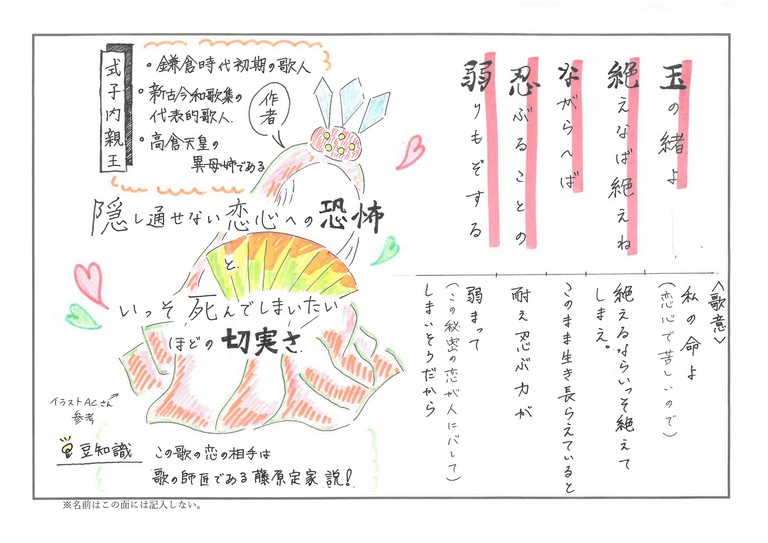 玉の緒よ
絶えなば絶えね
ながらへば
忍ぶることの
弱りもぞする
<歌意>
私の命よ
(恋心で苦しいので)
絶えるならいっそ絶えて
しまえ。
このまま生き長らえていると
耐え忍ぶ力が
弱まって
(この秘密の恋が人にバレて)
しまいそうだから
式子内親王
・鎌倉時代初期の歌人
・新古今和歌集の
代表的歌人.
・高倉天皇の
異母姉である
作者
隠し通せない恋心への恐怖
と.
いっそ死んでしまいたい
ほどの切実さ.
イラストACさん
参考
豆知識
この歌の恋の相手は
歌の師匠である藤原定家説!
※名前はこの面には記入しない。